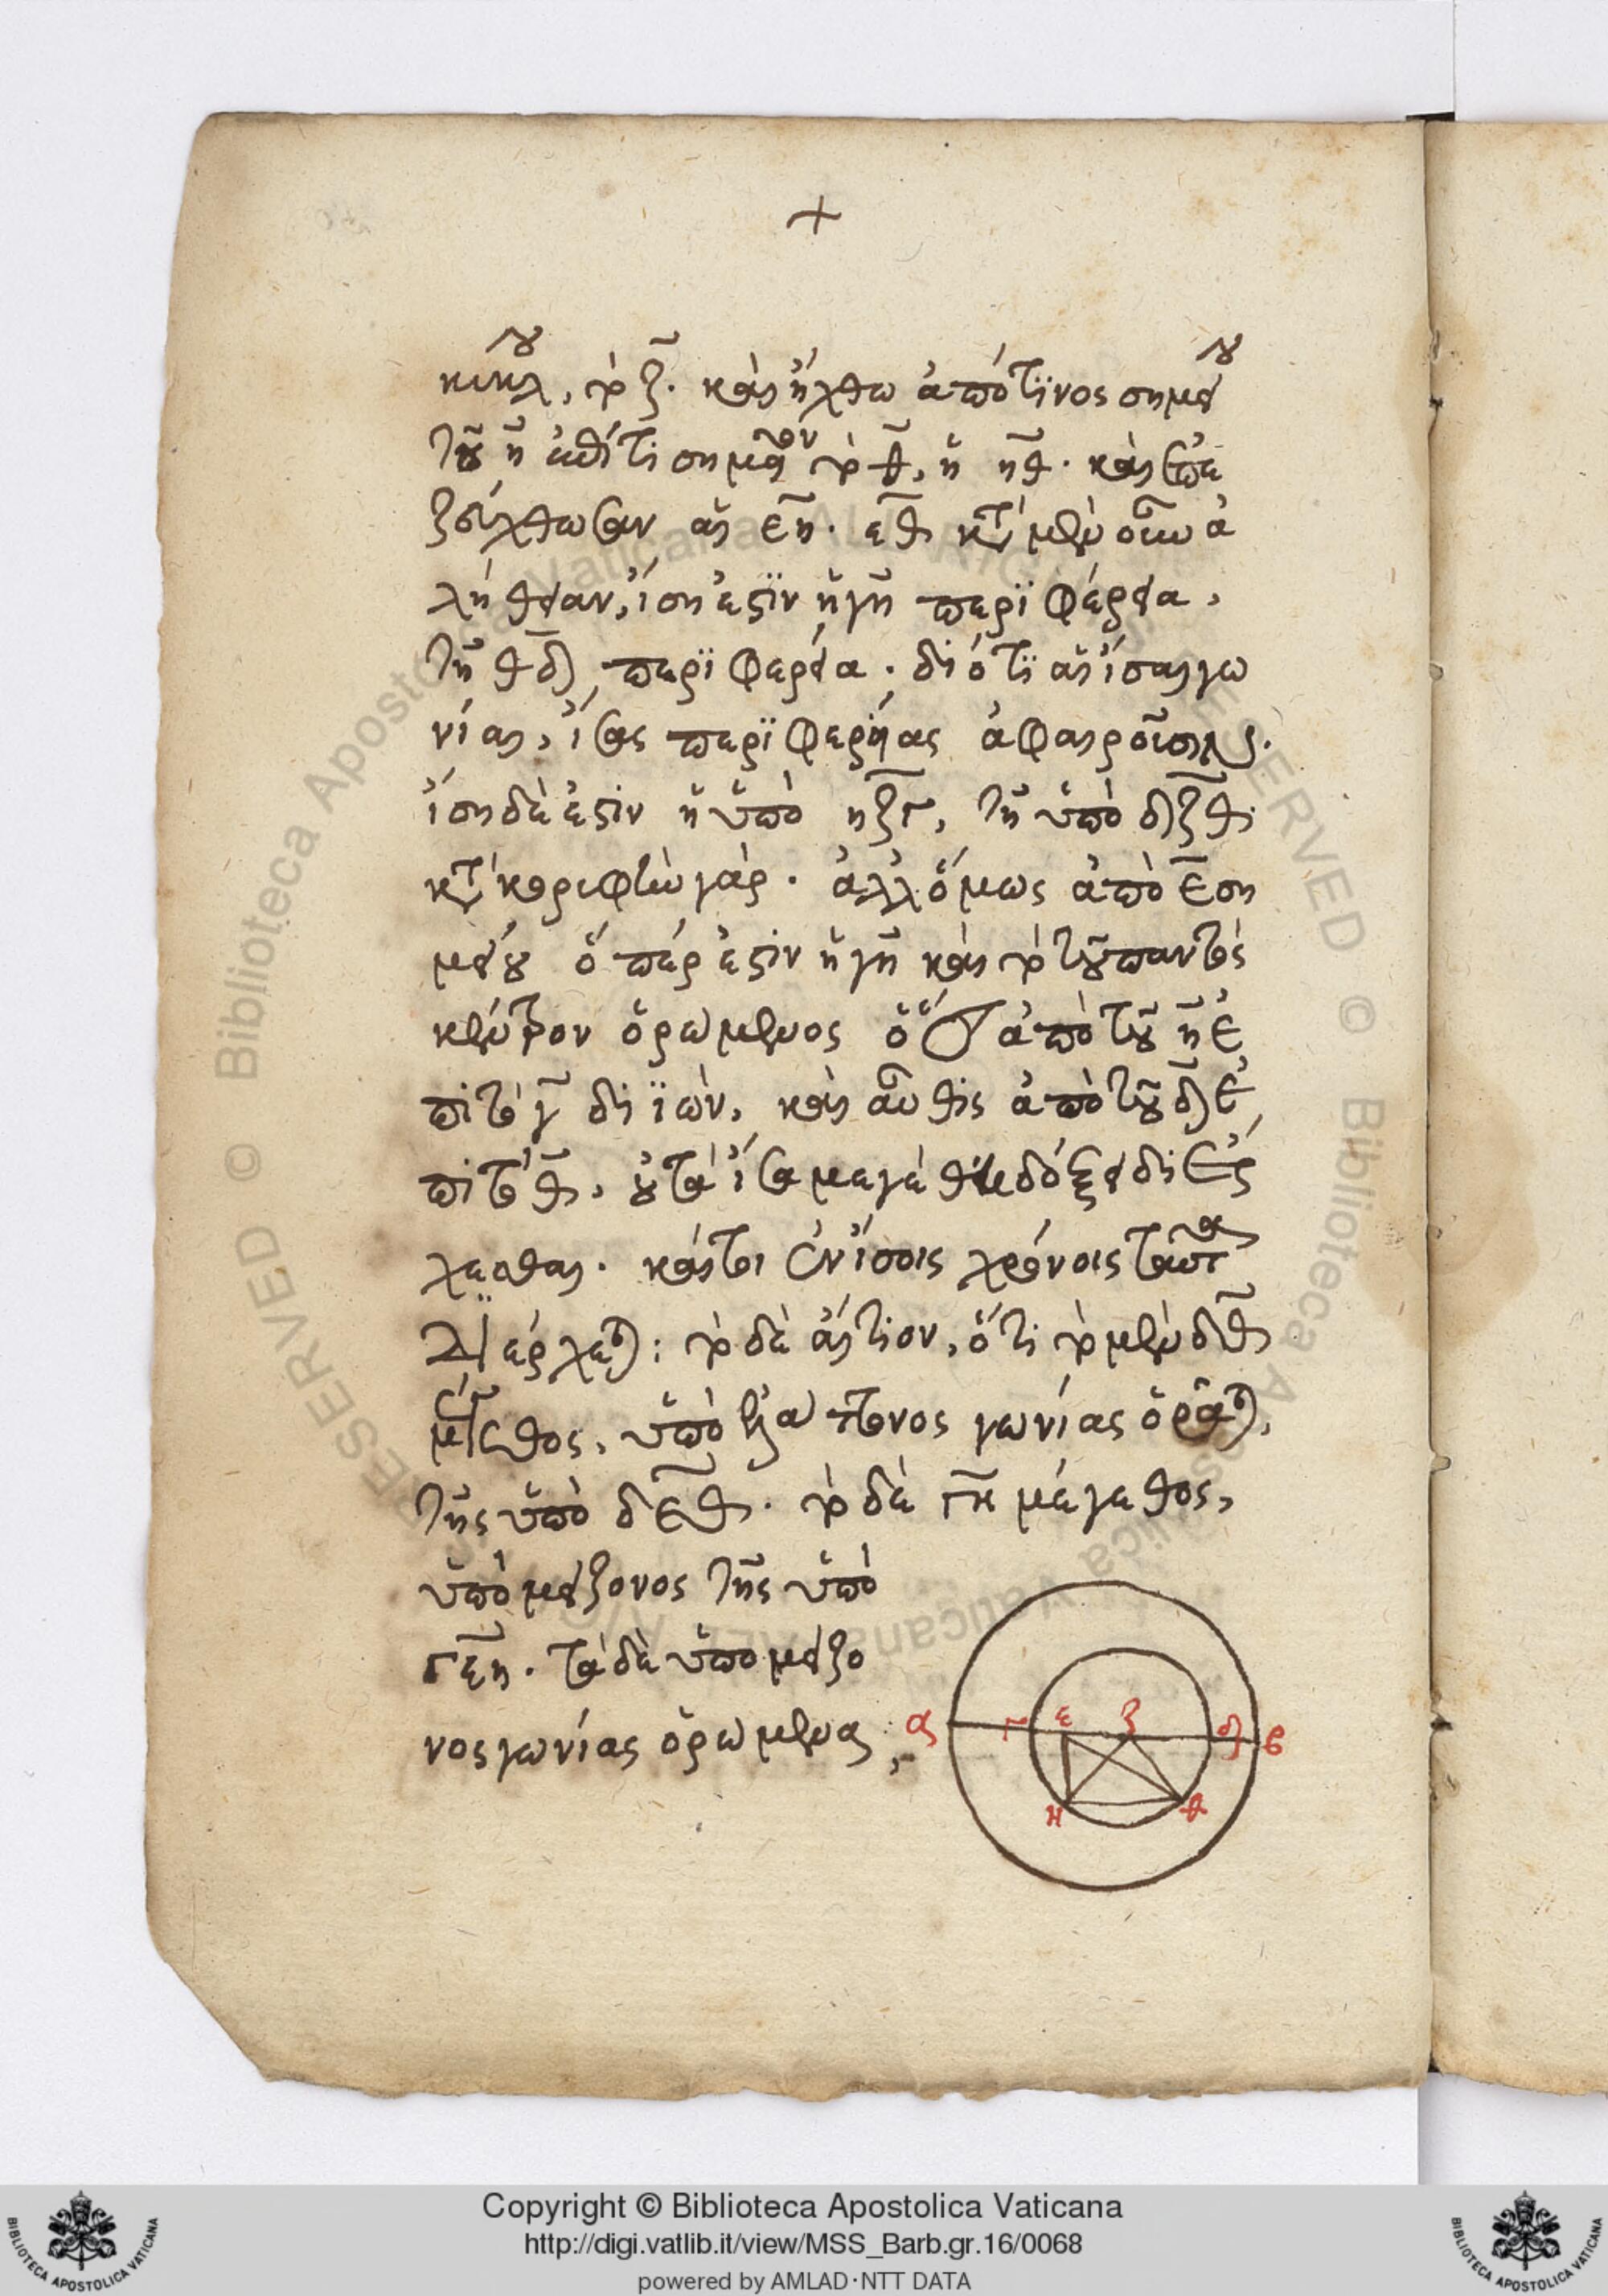 +
κύκλου, τὸ ζ̄. καὶ ἤχθω ἀπό τινος σημείου
τοῦ η̄ ἐπί τι σημεῖον τὸ θ̄, ἡ η̄θ̄. καὶ ἐπε
ζεύχθωσαν αἱ ε̄η̄. ε̄θ̄ κατὰ μὲν οὖν ἀ
λήθειαν, ἴση ἐστὶν ἡ γη̄ περιφέρεια,
τῇ θ̄δ̄ περιφερεία. διότι αἱ ἴσαι γω
νίαι, ἴσας περιφερείας ἀφαιροῦσιν.
ἴση δέ ἐστιν ἡ ὑπὸ ηζγ, τῇ ὑπὸ δζθ
κατὰ κορυφὴν γάρ. ἀλλ' ὅμως ἀπὸ ε̄ ση
μείου ὅπέρ ἐστιν ἡ γῆ καὶ τὸ τοῦ παντὸς
κέντρον ὁρώμενος ὁ ἥλιος ἀπὸ τοῦ η̄ ἐ
πὶ τὸ γ̄ διϊών, καὶ αὖθις ἀπὸ τοῦ δ̄ ἐ
πὶ τὸ θ̄, οὐ τὰ ἴσα μεγέθη δόξει διέρ
χεσθαι. καίτοι ἐν ἴσοις χρόνοις ταῦτα
διέρχεται: τὸ δὲ αἴτιον, ὅτι τὸ μὲν δθ
μέγεθος, ὑπὸ ἐλάττονος γωνίας ὁρᾶται,
τῆς ὑπὸ δεθ. τὸ δὲ γη̄ μέγεθος,
ὑπὸ μείζονος τῆς ὑπὸ
γεη. τὰ δὲ ὑπὸ μείζο
νος γωνίας ὁρώμενα,
α γ ε ζ δ β
η θ
Copyright © Biblioteca Apostolica Vaticana
http://digi.vatlib.it/view/MSS_Barb.gr.16/0068
powered by AMLAD·NTT DATA
BIBLIOTECA APOSTOLICA VATICANA
BIBLIOTECA APOSTOLICA VATICANA